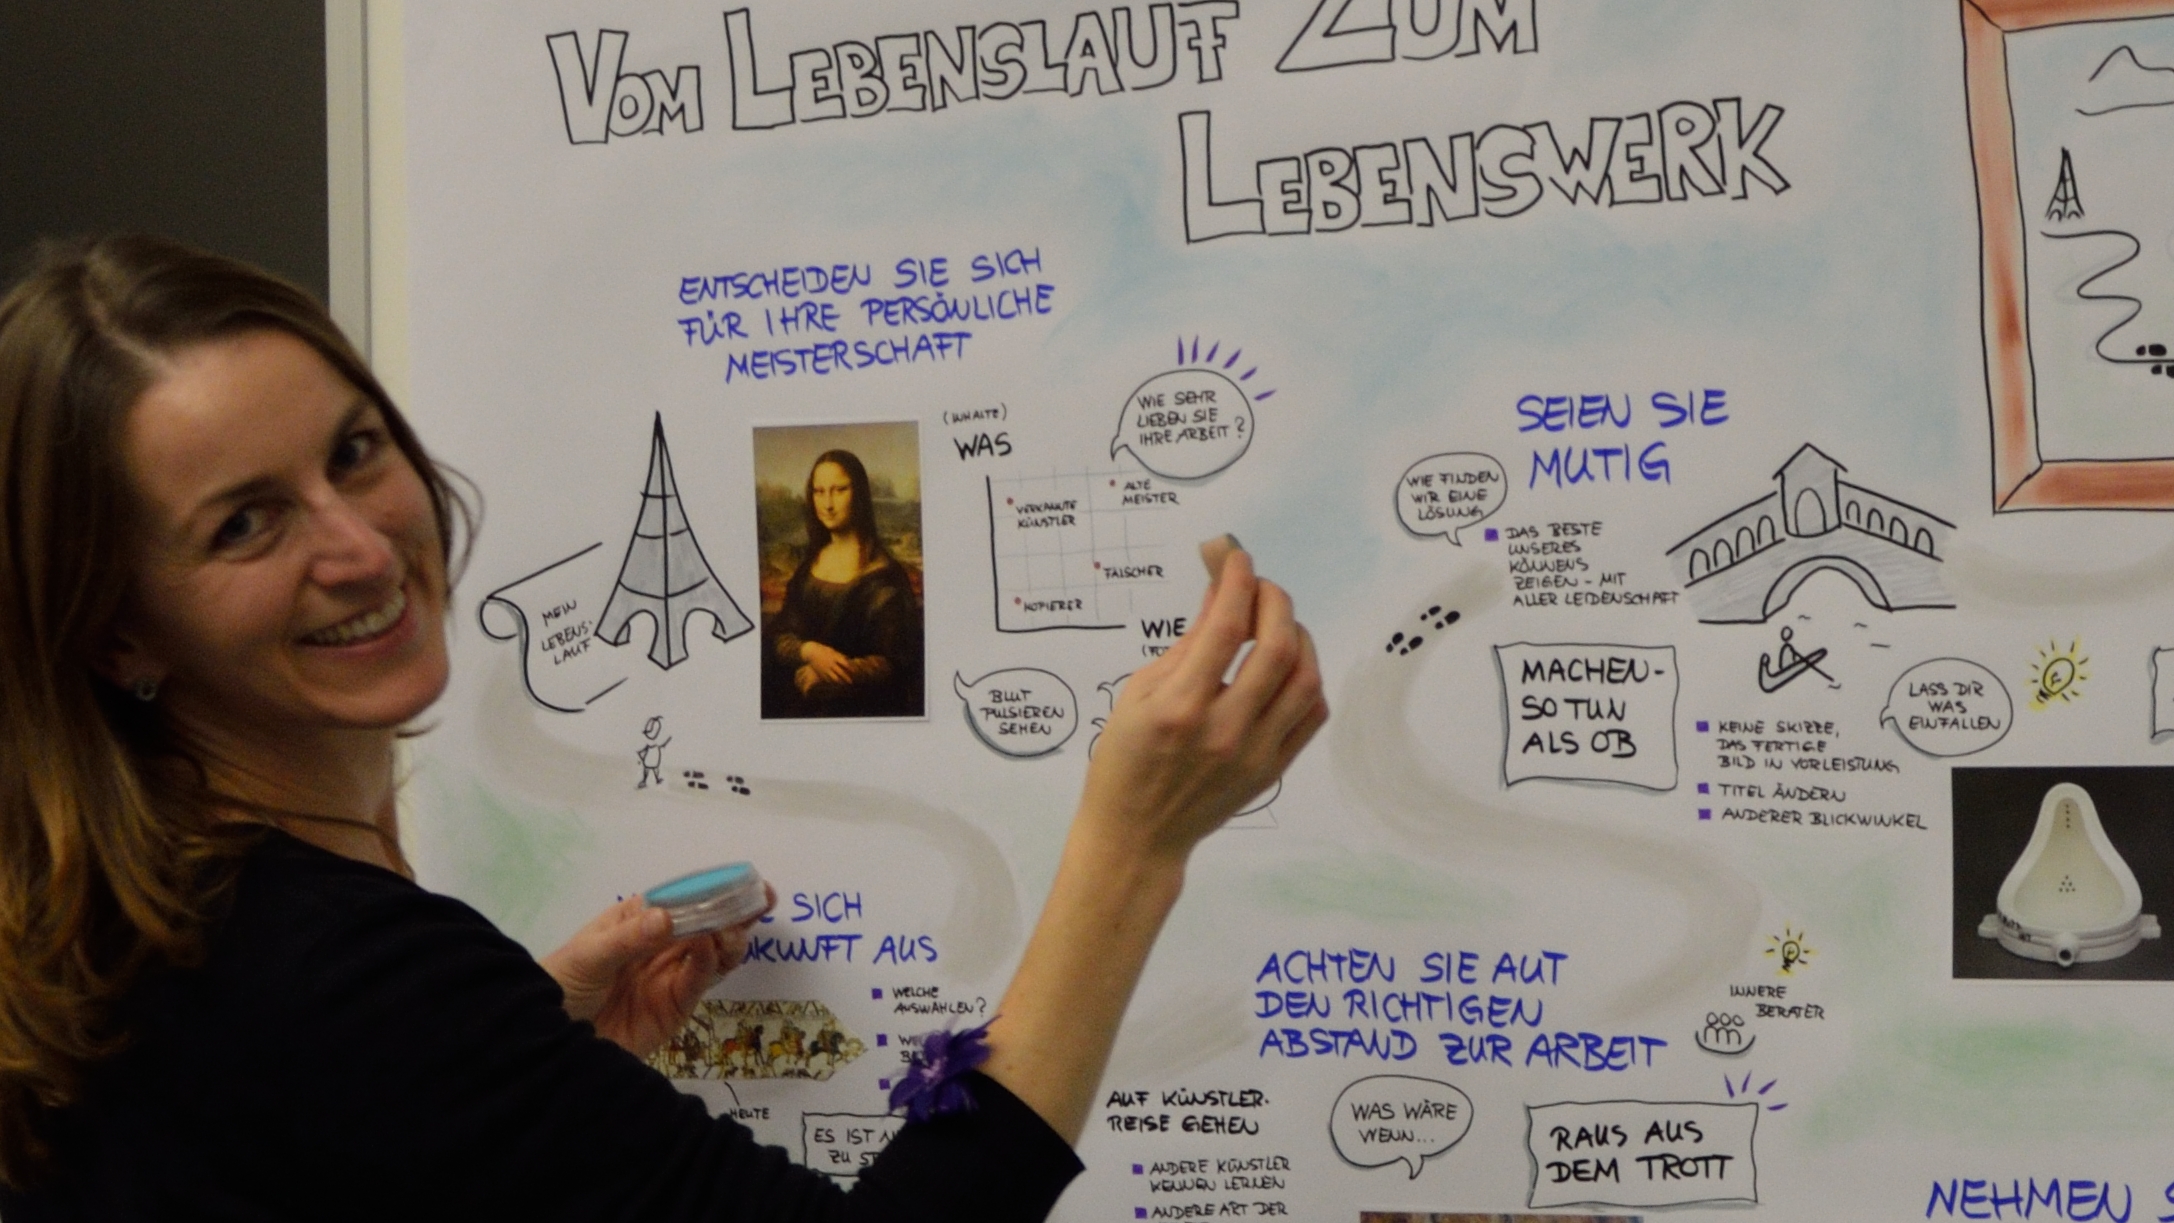 VOM LEBENSLAUF ZUM
LEBENSWERK
ENTSCHEIDEN SIE SICH
FÜR IHRE PERSÖNLICHE
MEISTERSCHAFT
MEIN
LEBENS-
LAUF
(INHALTE)
WAS
WIE SEHR
LIEBEN SIE
IHRE ARBEIT?
VERKANNTE
KÜNSTLER
ALTE
MEISTER
FÄLSCHER
KOPIERER
WIE
BLUT
PULSIEREN
SEHEN
SEIEN SIE
MUTIG
WIE FINDEN
WIR EINE
LÖSUNG
DAS BESTE
UNSERES
KÖNNENS
ZEIGEN - MIT
ALLER LEIDENSCHAFT
MACHEN-
SO TUN
ALS OB
LASS DIR
WAS
EINFALLEN
KEINE SKIZZE,
DAS FERTIGE
BILD IN VORLEISTUNG
TITEL ÄNDERN
ANDERER BLICKWINKEL
SICH
AUS
WELCHE
AUSWAHLEN?
HEUTE
ES IST
ZU
ACHTEN SIE AUF
DEN RICHTIGEN
ABSTAND ZUR ARBEIT
INNERE
BERATER
AUF KÜNSTLER-
REISE GEHEN
ANDERE KÜNSTLER
KENNEN LERNEN
ANDERE ART DER
WAS WÄRE
WENN...
RAUS AUS
DEM TROTT
NEHMEN